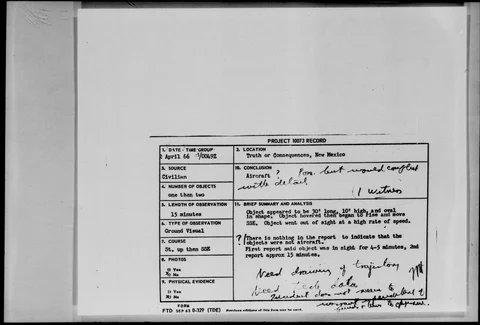 PROJECT 10073 RECORD
1. DATE - TIME GROUP
2 April 66 /0049Z
2. LOCATION
Truth or Consequences, New Mexico
3. SOURCE
Civilian
10. CONCLUSION
Aircraft ? Poss. but would
with detail
(1 witness
4. NUMBER OF OBJECTS
one then two
5. LENGTH OF OBSERVATION
15 minutes
11. BRIEF SUMMARY AND ANALYSIS
Object appeared to be 30' long, 10' high, and oval
in shape. Object hovered then began to rise and move
SSE. Object went out of sight at a high rate of speed.
6. TYPE OF OBSERVATION
Ground Visual
7. COURSE
St. up then SSE
? There is nothing in the report to indicate that the
objects were not aircraft.
First report said object was in sight for 4-5 minutes, 2nd
report approx 15 minutes.
8. PHOTOS
□ Yes
No
Need drawing of trajectory
9. PHYSICAL EVIDENCE
□ Yes
No
Need data
does not seem to
FORM
FTD SEP 63 0-329 (TDE) Previous editions of this form may be used.